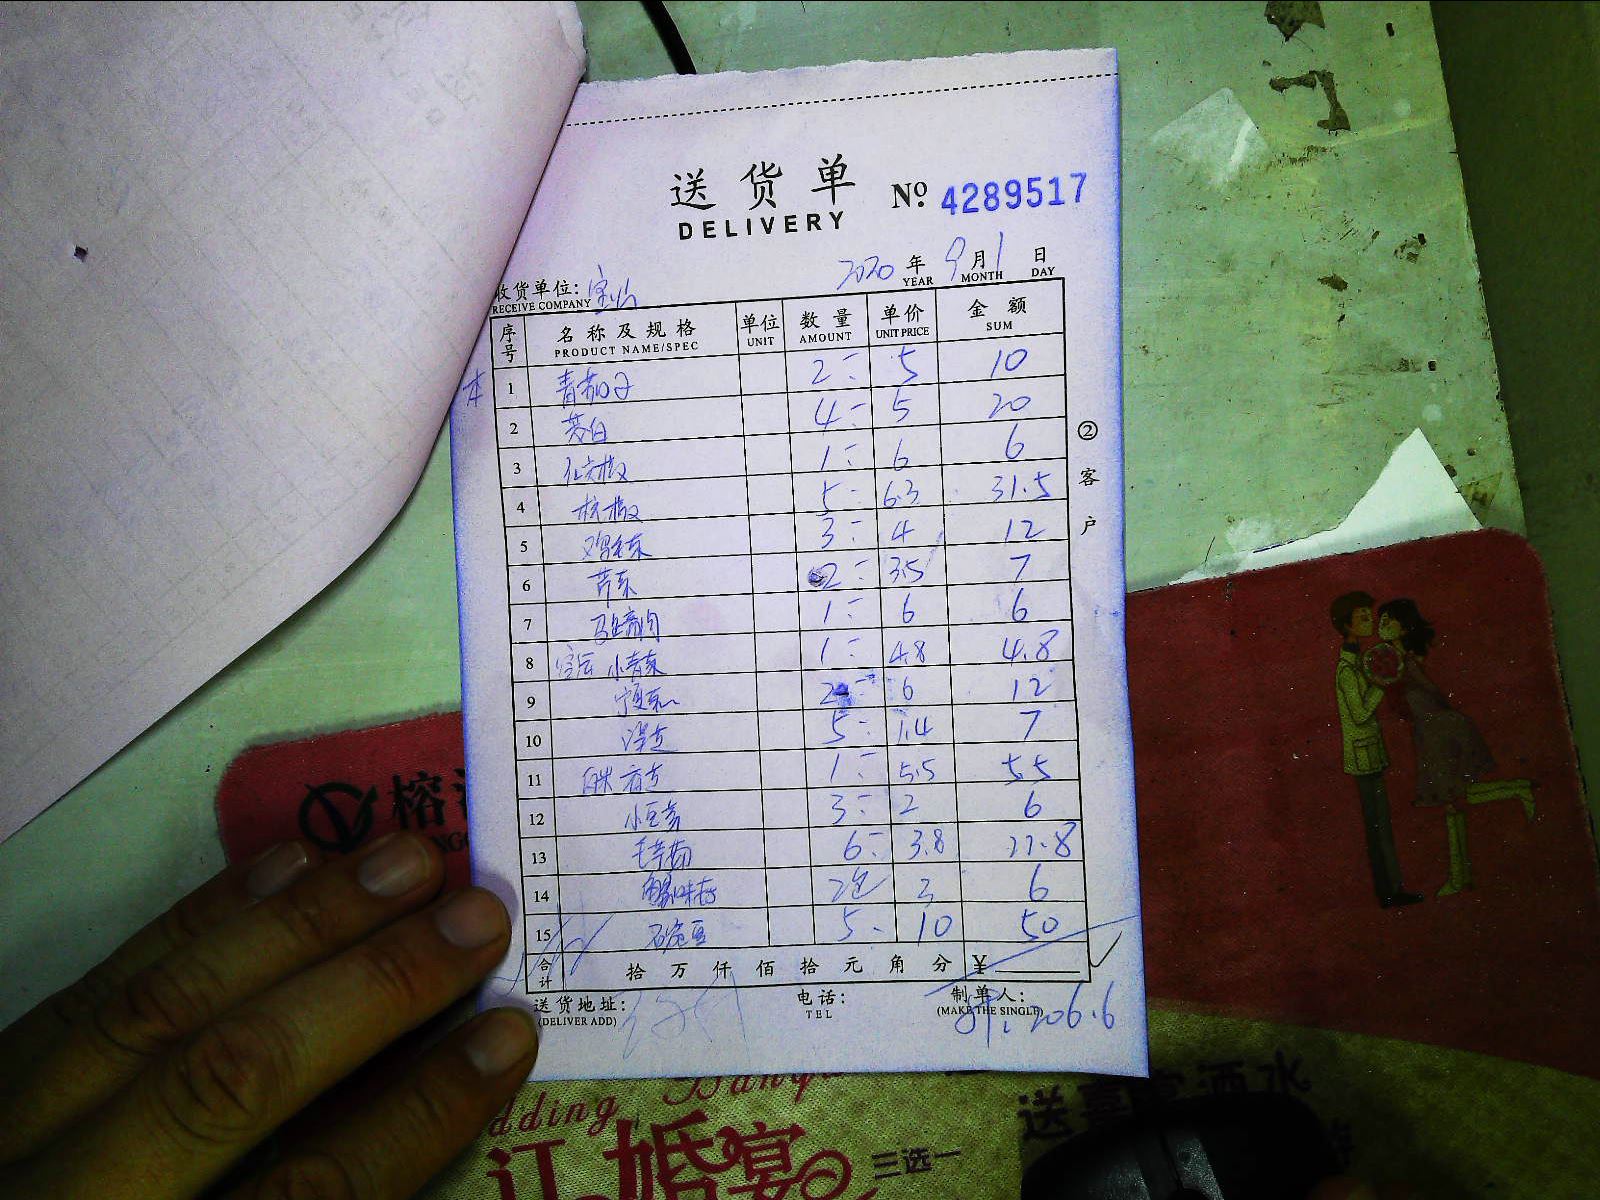 送货单 № 4289517
DELIVERY
2020 年 9 月 1 日
YEAR MONTH DAY
收货单位:
RECEIVE COMPANY
序号 名称及规格 单位 数量 单价 金额
PRODUCT NAME/SPEC UNIT AMOUNT UNIT PRICE SUM
1 青茄子 2 5 10
2 茭白 4 5 20
3 1 6 6
4 杭椒 5 6.3 31.5
5 鸡毛菜 3 4 12
6 芹菜 2 3.5 7
7 1 6 6
8 小青菜 1 4.8 4.8
9 2 6 12
10 5 1.4 7
11 1 5.5 5.5
12 3 2 6
13 6 3.8 22.8
14 蟹味菇 2包 3 6
15 5 10 50
合计 拾万仟佰拾元角分 ¥
② 客户
送货地址: 电话: 制单人:
(DELIVER ADD) TEL (MAKE THE SINGLE)
206.6
榕
dding Banqu
订婚宴
三选一
送喜宴酒水